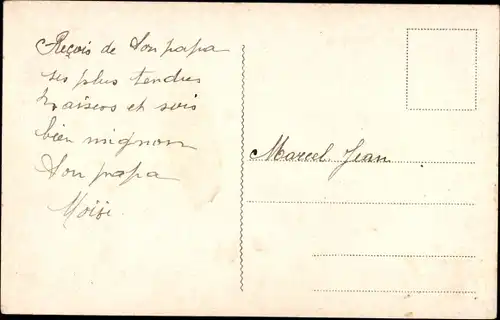 Reçois de ton papa
ses plus tendres
baisers et sois
bien mignon
ton papa
Moïse
Marcel Jean